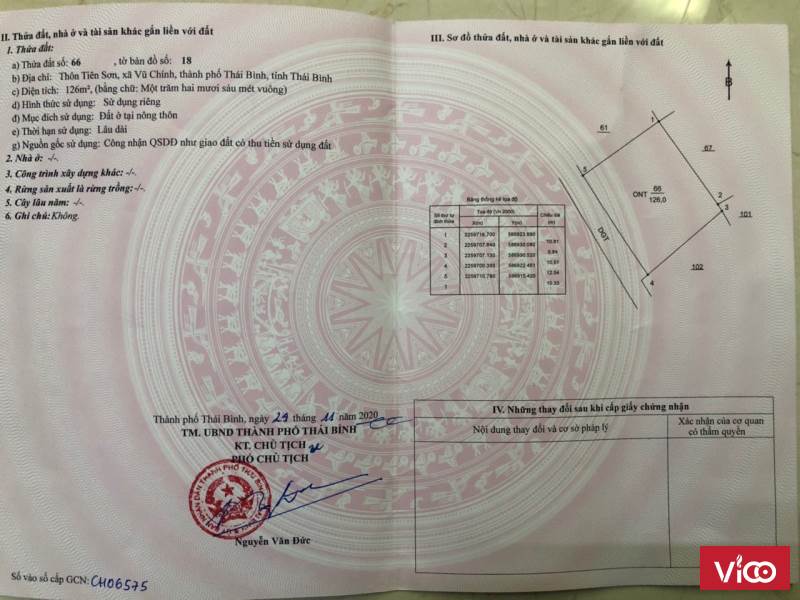 II. Thửa đất, nhà ở và tài sản khác gắn liền với đất
1. Thửa đất:
a) Thửa đất số: 66 , tờ bản đồ số: 18
b) Địa chỉ: Thôn Tiên Sơn, xã Vũ Chính, thành phố Thái Bình, tỉnh Thái Bình
c) Diện tích: 126m², (bằng chữ: Một trăm hai mươi sáu mét vuông)
d) Hình thức sử dụng: Sử dụng riêng
đ) Mục đích sử dụng: Đất ở tại nông thôn
e) Thời hạn sử dụng: Lâu dài
g) Nguồn gốc sử dụng: Công nhận QSDĐ như giao đất có thu tiền sử dụng đất
2. Nhà ở: -/-.
3. Công trình xây dựng khác: -/-.
4. Rừng sản xuất là rừng trồng: -/-.
5. Cây lâu năm: -/-.
6. Ghi chú: Không.
Thành phố Thái Bình, ngày 29 tháng 11 năm 2020
TM. UBND THÀNH PHỐ THÁI BÌNH
KT. CHỦ TỊCH
PHÓ CHỦ TỊCH
Nguyễn Văn Đức
Số vào sổ cấp GCN: CH06575
III. Sơ đồ thửa đất, nhà ở và tài sản khác gắn liền với đất
B
61
1
67
5
ONT 66
126,0
2
3
101
ĐGT
102
4
Bảng thống kê tọa độ
Số thứ tự đỉnh thửa
Tọa độ (VN 2000)
Chiều dài (m)
X(m) Y(m)
1
2
3
4
5
1
10.81
0.94
10.81
12.64
10.33
IV. Những thay đổi sau khi cấp giấy chứng nhận
Nội dung thay đổi và cơ sở pháp lý
Xác nhận của cơ quan
có thẩm quyền
ViCO